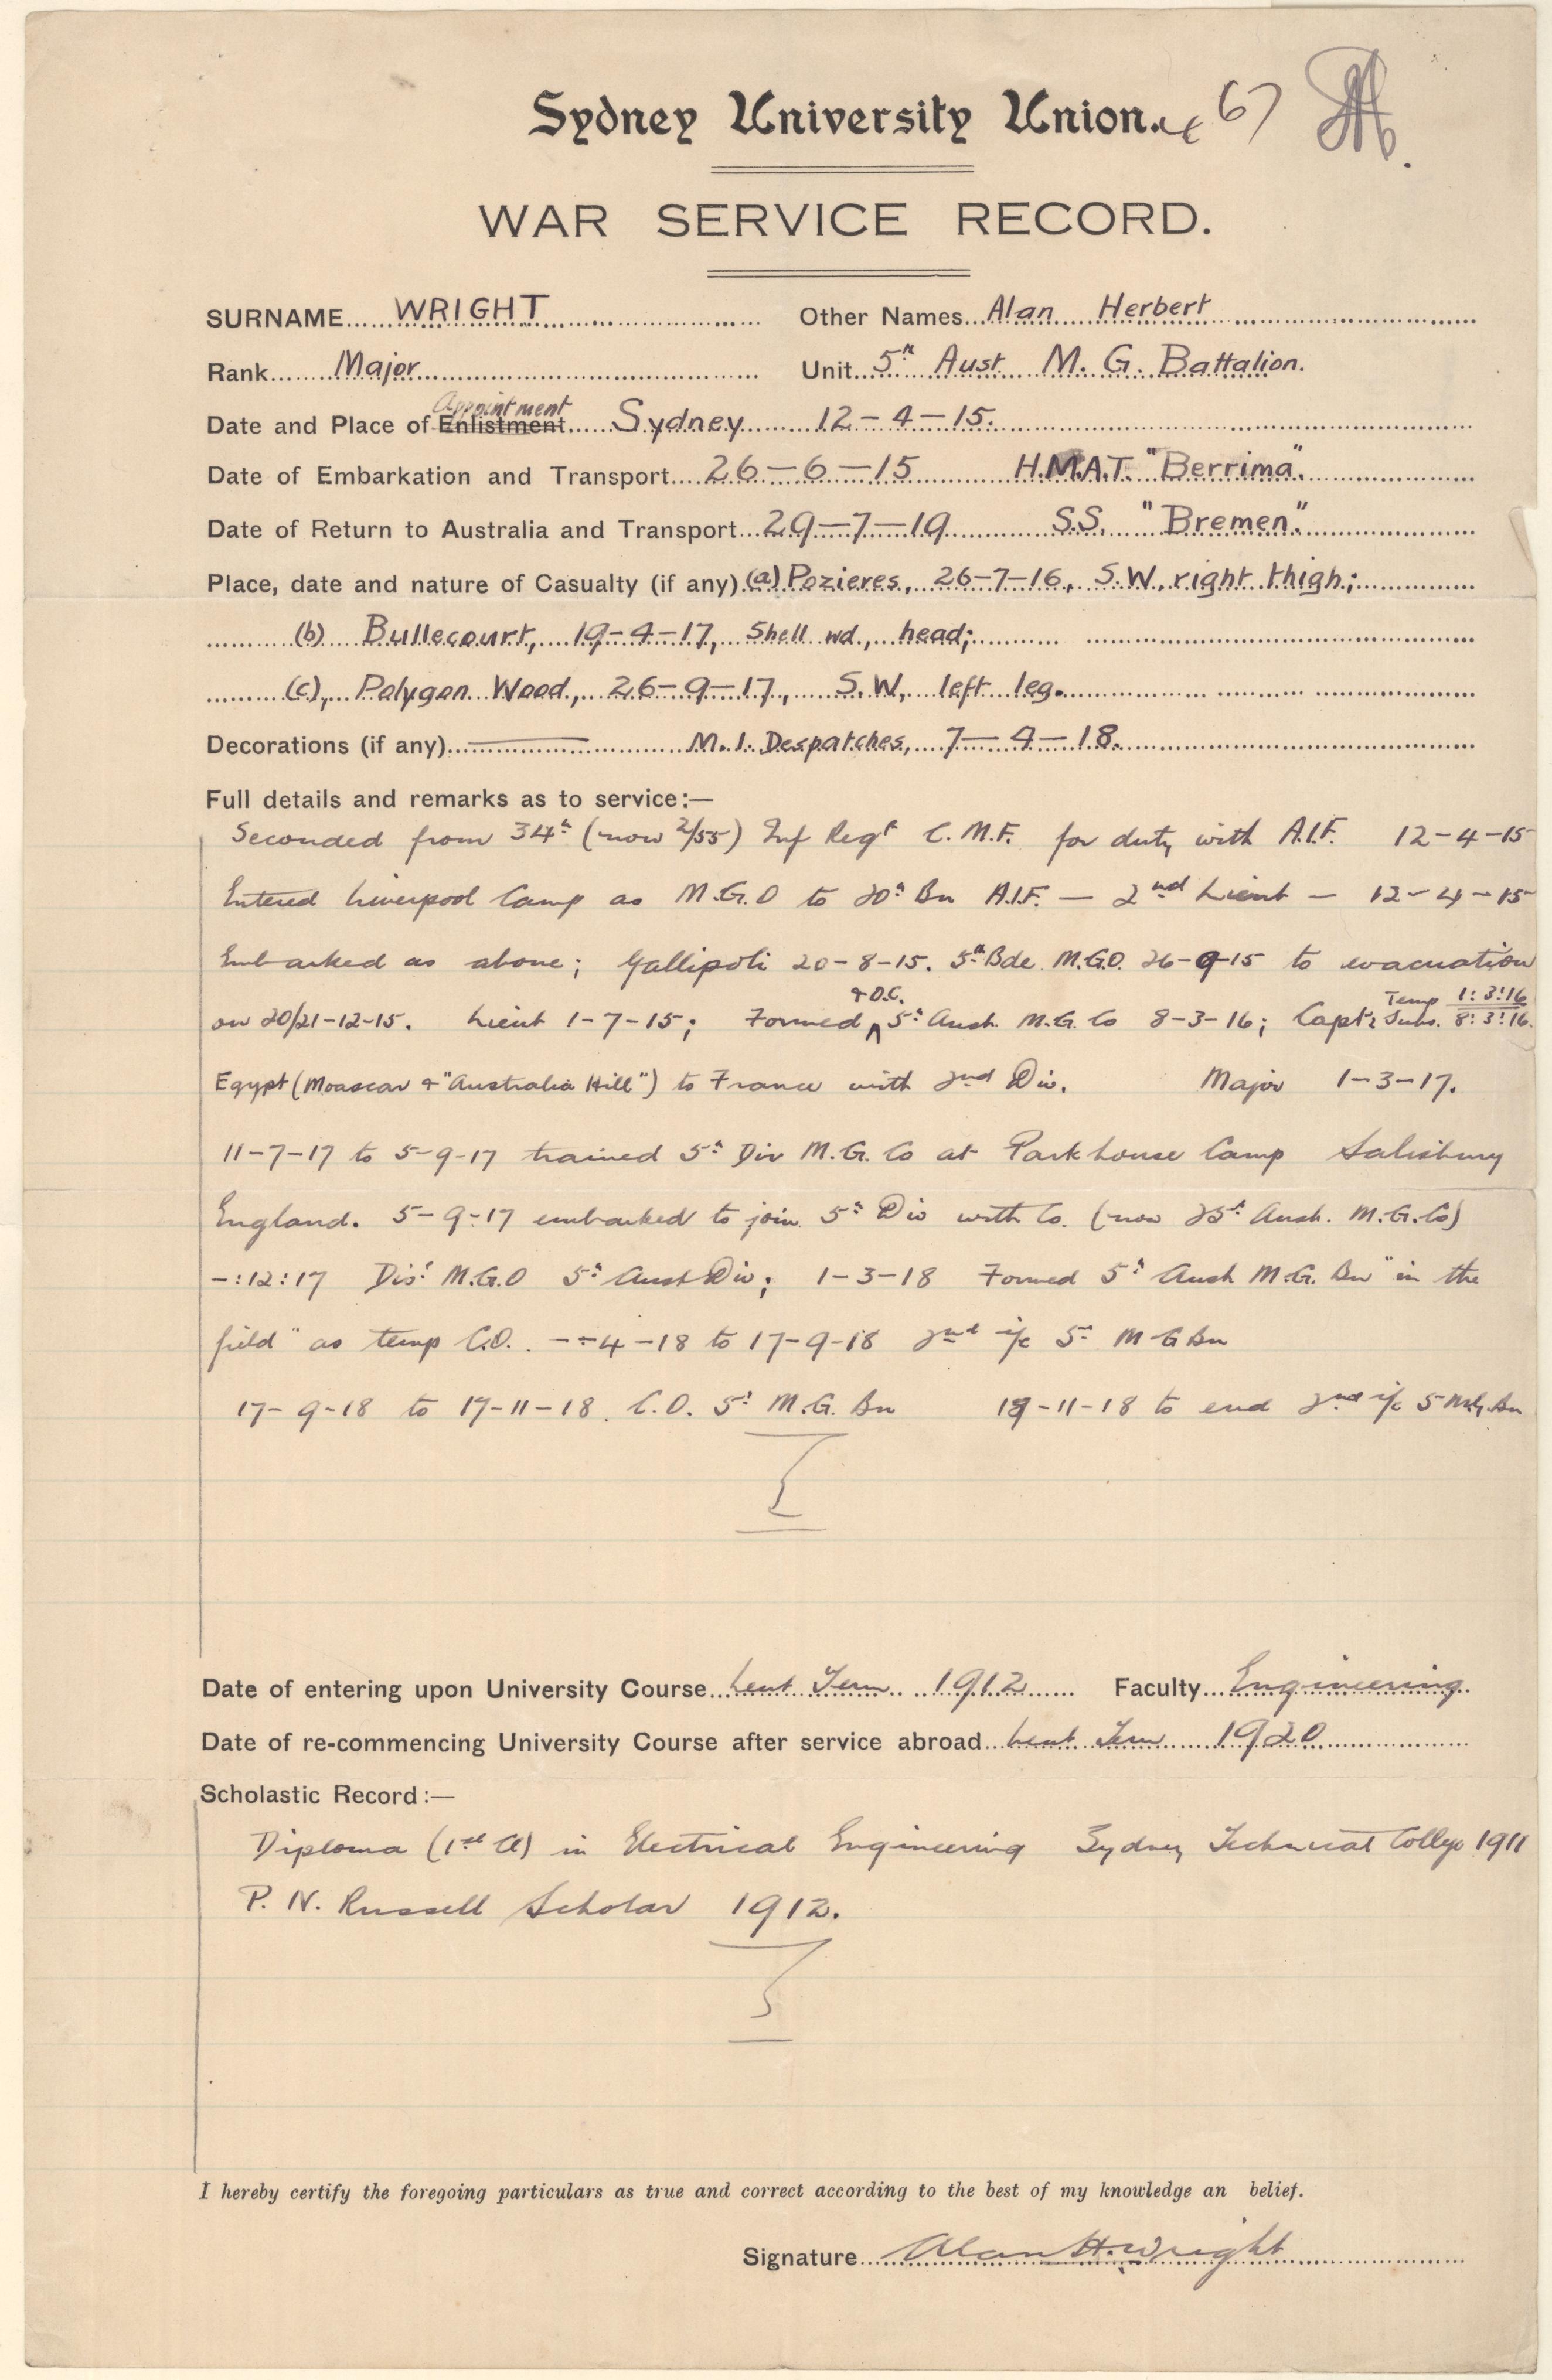 Sydney University Union. 67
WAR SERVICE RECORD.
SURNAME...... WRIGHT ...... Other Names... Alan Herbert
Rank...... Major ...... Unit... 5th Aust M. G. Battalion.
Appointment
Date and Place of Enlistment...... Sydney 12-4-15.
Date of Embarkation and Transport.... 26-6-15 H.M.A.T. "Berrima".
Date of Return to Australia and Transport... 29-7-19 S.S. "Bremen".
Place, date and nature of Casualty (if any). (a) Pozieres, 26-7-16, S.W. right thigh;
(b) Bullecourt, 19-4-17, Shell wd., head;
(c), Polygon Wood, 26-9-17, S.W, left leg.
Decorations (if any)... — M. I. Despatches, 7-4-18.
Full details and remarks as to service:—
Seconded from 34th (now 2/55) Inf Regt C.M.F. for duty with A.I.F. 12-4-15
Entered Liverpool Camp as M.G.O to 20th Bn A.I.F. — 2nd Lieut — 12-4-15
Embarked as above; Gallipoli 20-8-15. 5th Bde. M.G.O. 26-9-15 to evacuation
& O.C. Temp 1:3:16
on 20/21-12-15. Lieut 1-7-15; Formed 5th Aust. M.G. Co 8-3-16; Capt Subs. 8:3:16.
Egypt (Moascar & "Australia Hill") to France with 2nd Div. Major 1-3-17.
11-7-17 to 5-9-17 trained 5th Div M.G. Co at Parkhouse Camp Salisbury
England. 5-9-17 embarked to join 5th Div with Co. (now 25th Aust. M.G. Co)
-:12:17 Div. M.G.O 5th Aust Div; 1-3-18 Formed 5th Aust M.G. Bn "in the
field" as temp C.O. --4-18 to 17-9-18 2nd i/c 5th M G Bn
17-9-18 to 17-11-18. C.O. 5th M.G. Bn 18-11-18 to end 2nd i/c 5 M.G. Bn
Date of entering upon University Course... Lent Term 1912 ...... Faculty... Engineering.
Date of re-commencing University Course after service abroad... Lent Term 1920
Scholastic Record:—
Diploma (1st Cl) in Electrical Engineering Sydney Technical College 1911
P. N. Russell Scholar 1912.
I hereby certify the foregoing particulars as true and correct according to the best of my knowledge an belief.
Signature... Alan H. Wright